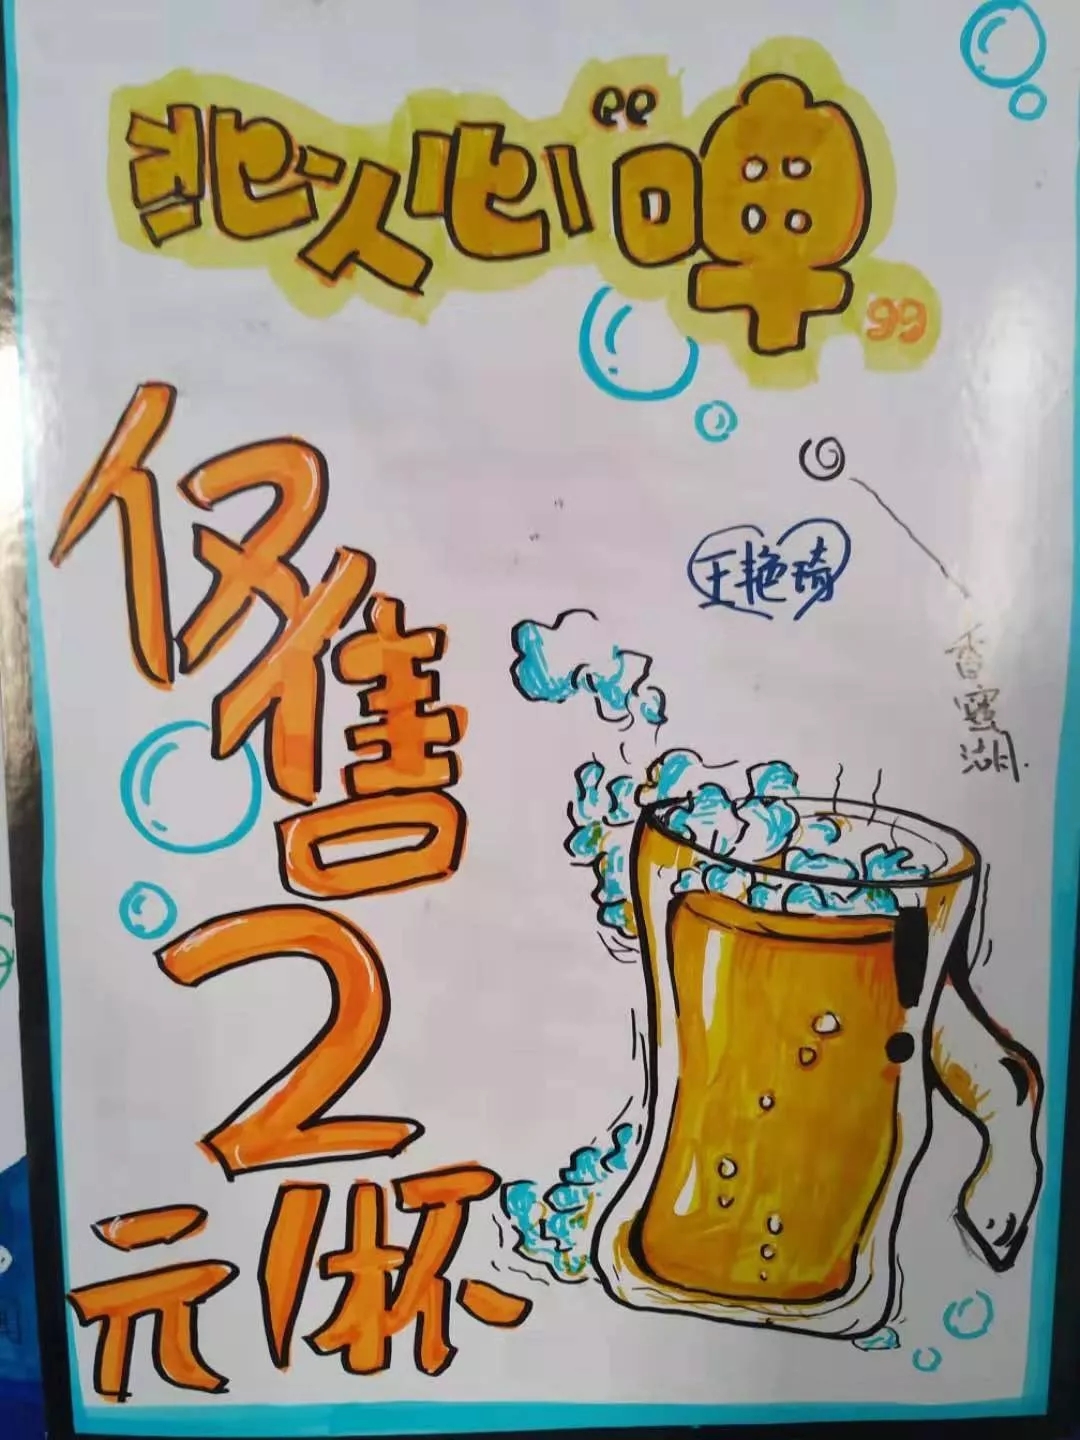 沁人心“啤”
仅售
2
元/杯
王艳琦
香蜜湖